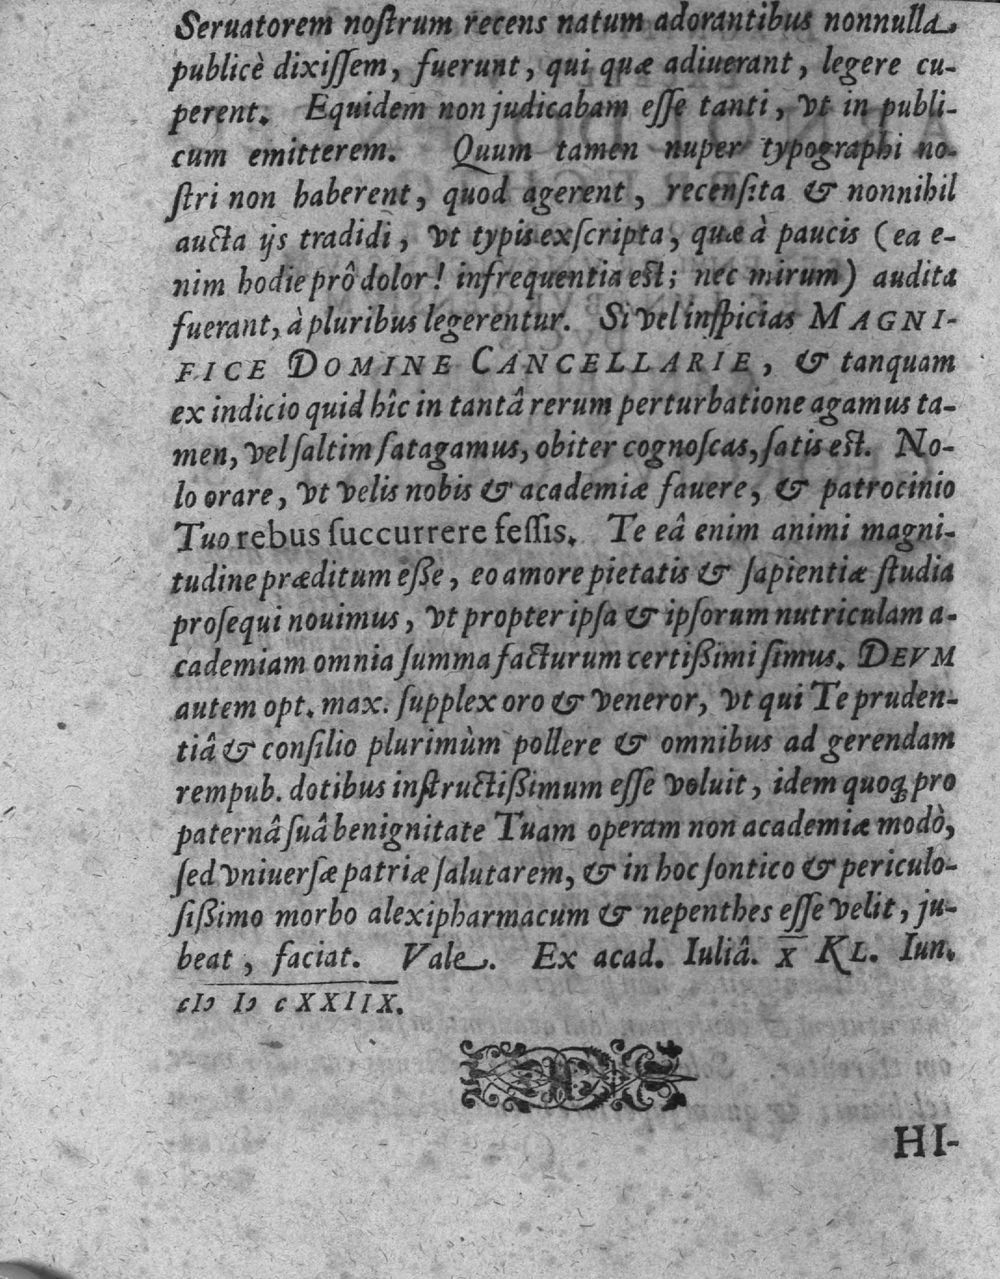 Seruatorem noſtrum recens natum adorantibus nonnulla
publicè dixiſſem, fuerunt, qui quæ adiuerant, legere cu-
perent. Equidem non judicabam eſſe tanti, vt in publi-
cum emitterem. Quum tamen nuper typographi no-
ſtri non haberent, quod agerent, recenſita & nonnihil
aucta ijs tradidi, vt typis exſcripta, quæ à paucis (ea e-
nim hodie prô dolor! infrequentia eſt; nec mirum) audita
fuerant, à pluribus legerentur. Si vel inſpicias MAGNI-
FICE DOMINE CANCELLARIE, & tanquam
ex indicio quid hîc in tantâ rerum perturbatione agamus ta-
men, vel ſaltim ſatagamus, obiter cognoſcas, ſatis eſt. No-
lo orare, vt velis nobis & academiæ fauere, & patrocinio
Tuo rebus ſuccurrere feſſis. Te eâ enim animi magni-
tudine præditum eße, eo amore pietatis & ſapientiæ ſtudia
proſequi nouimus, vt propter ipſa & ipſorum nutriculam a-
cademiam omnia ſumma facturum certißimi ſimus. DEVM
autem opt. max. ſupplex oro & veneror, vt qui Te pruden-
tiâ & conſilio plurimùm pollere & omnibus ad gerendam
rempub. dotibus inſtructißimum eſſe voluit, idem quoq́; pro
paternâ ſuâ benignitate Tuam operam non academiæ modò,
ſed vniuerſæ patriæ ſalutarem, & in hoc ſontico & periculo-
ſißimo morbo alexipharmacum & nepenthes eſſe velit, ju-
beat, faciat. Vale. Ex acad. Iuliâ. X KL. Iun.
cIↃ IↃ c XXIIX.
HI-